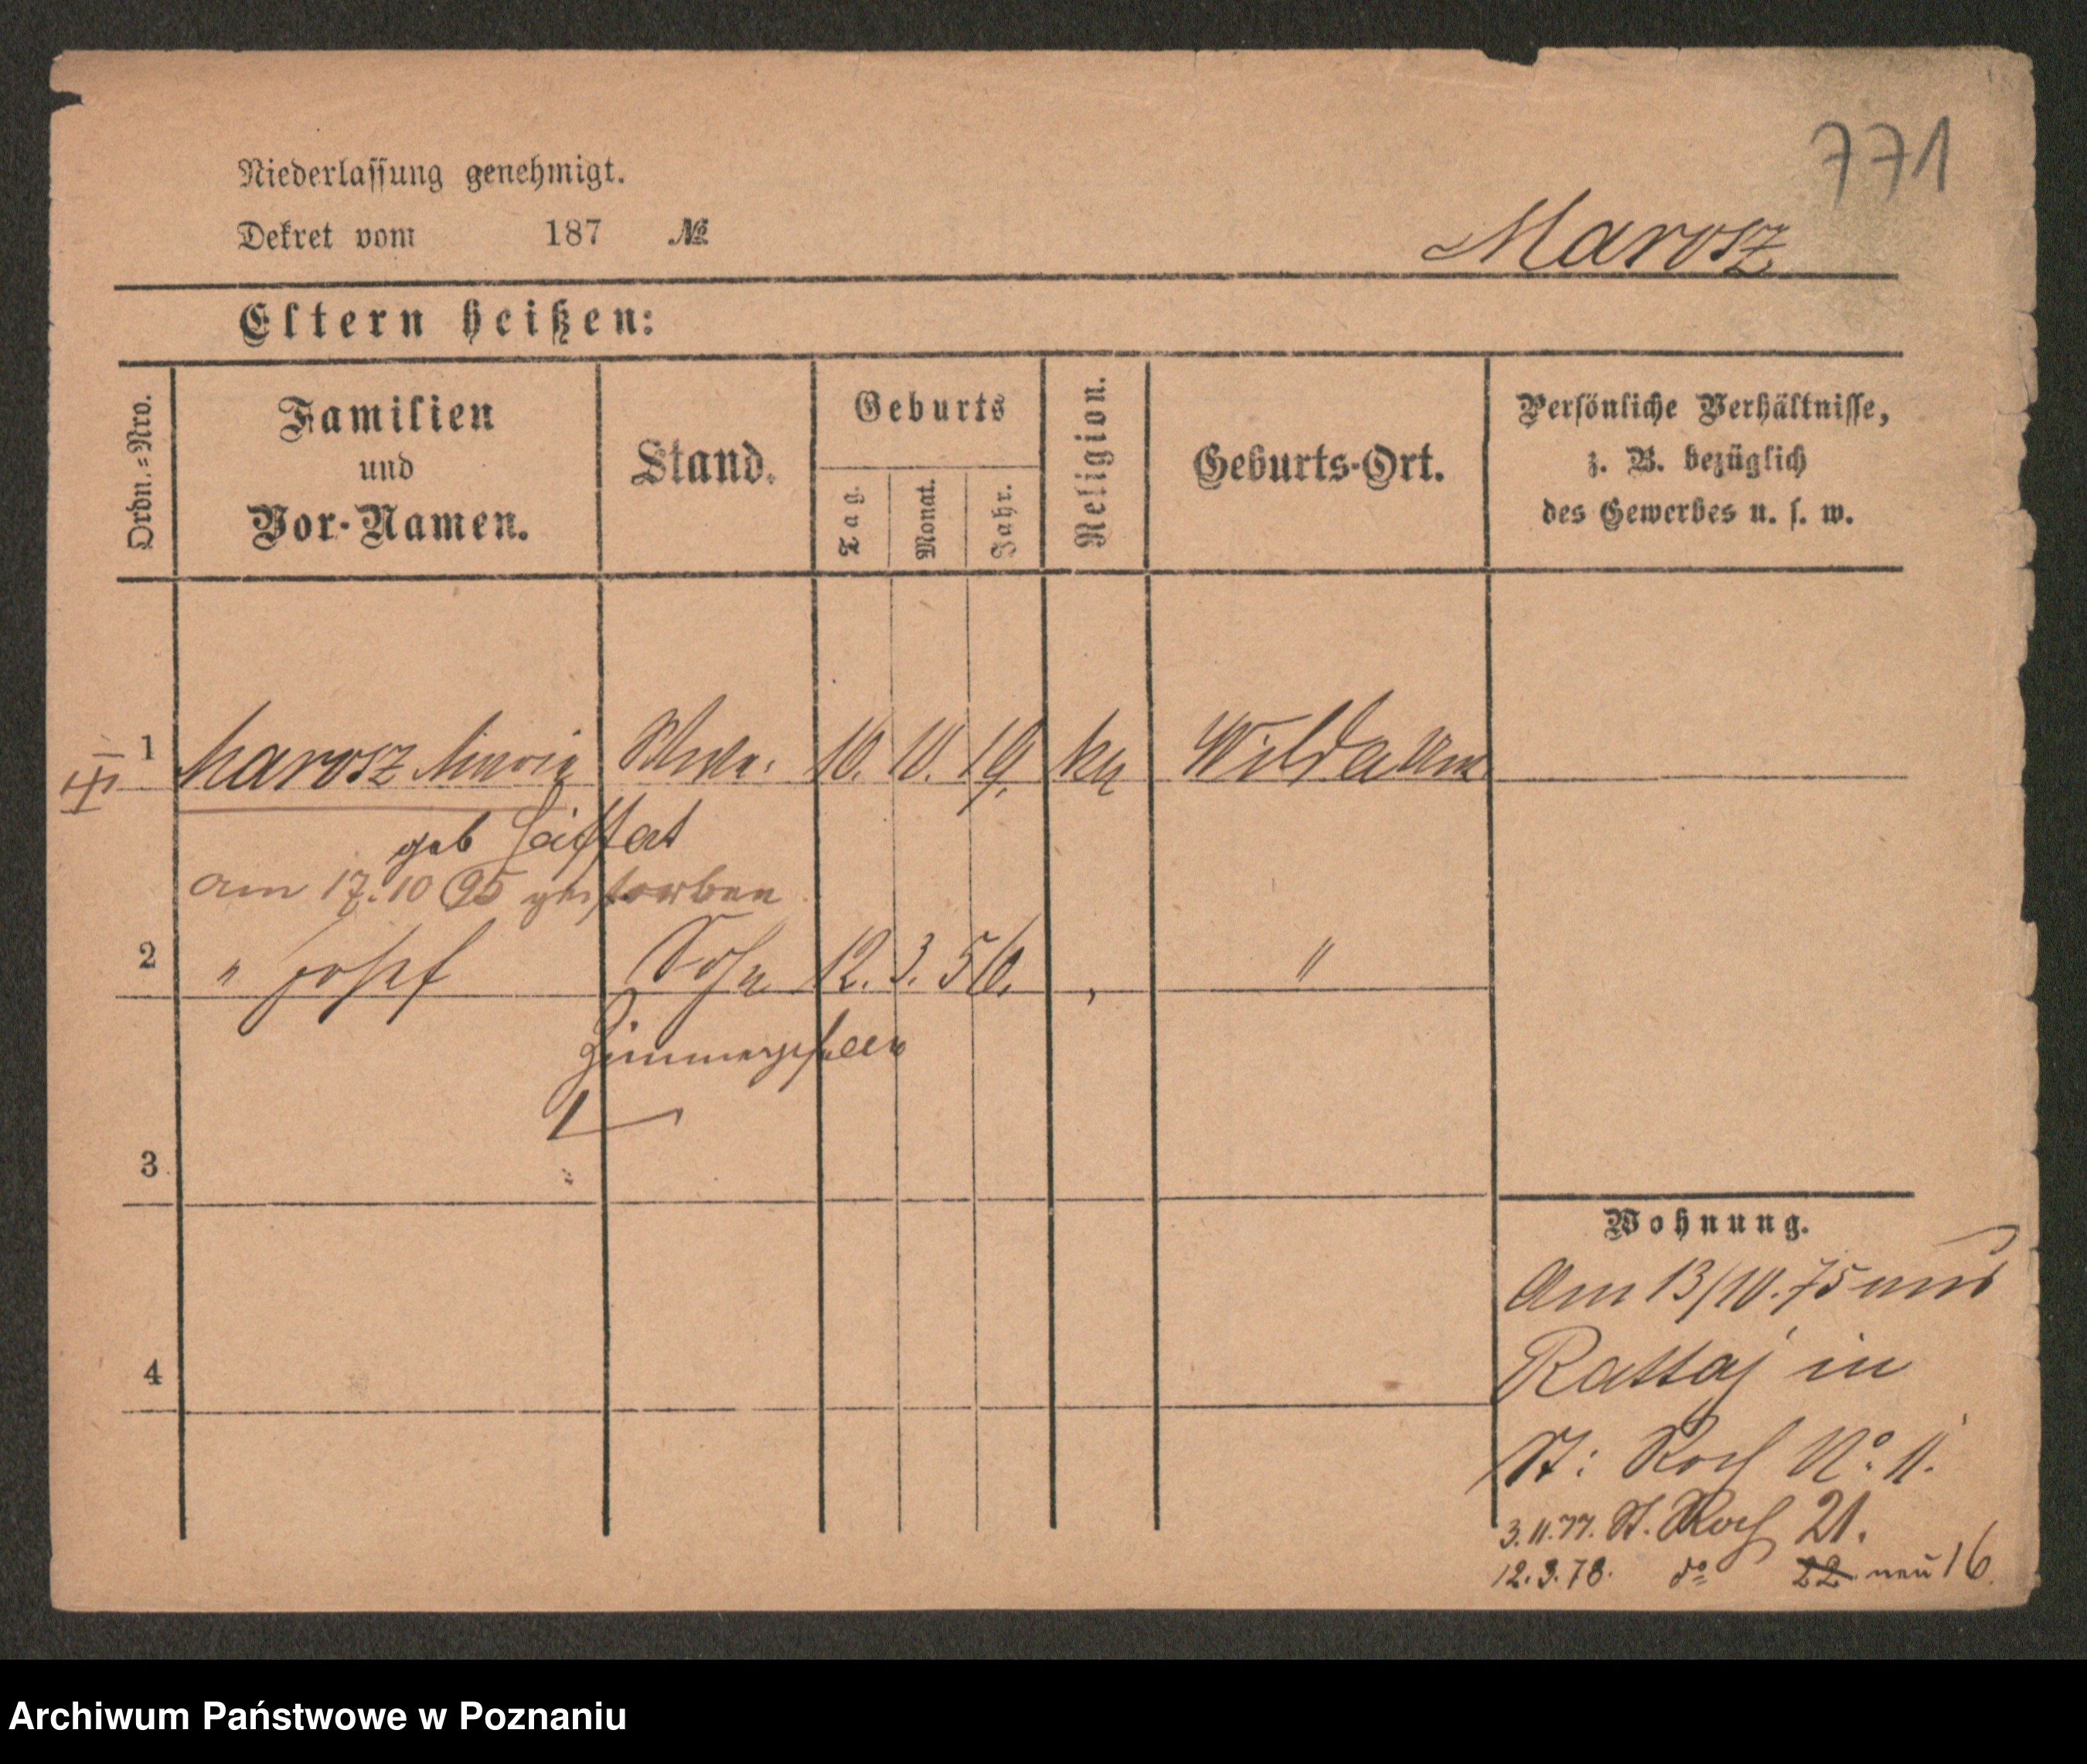 771
Niederlassung genehmigt.
Dekret vom 187 №
Marosz
Eltern heißen:
Ordn.=Nro.
Familien
und
Vor-Namen.
Stand.
Geburts
Tag.
Monat.
Jahr.
Religion.
Geburts-Ort.
Persönliche Verhältnisse,
z. B. bezüglich
des Gewerbes u. s. w.
1 Marosz Maria Wwe. 10. 10. 19. kth Wilda
geb Seiffert
am 17.10 95 gestorben
2 " Josef Sohn 12. 3. 56. , "
Zimmergesell
3
4
Wohnung.
Am 13/10. 75 aus
Rattaj in
St: Roch No. 11.
3.11.77. St. Roch 21.
12.3.78. do 22 neu 16
Archiwum Państwowe w Poznaniu